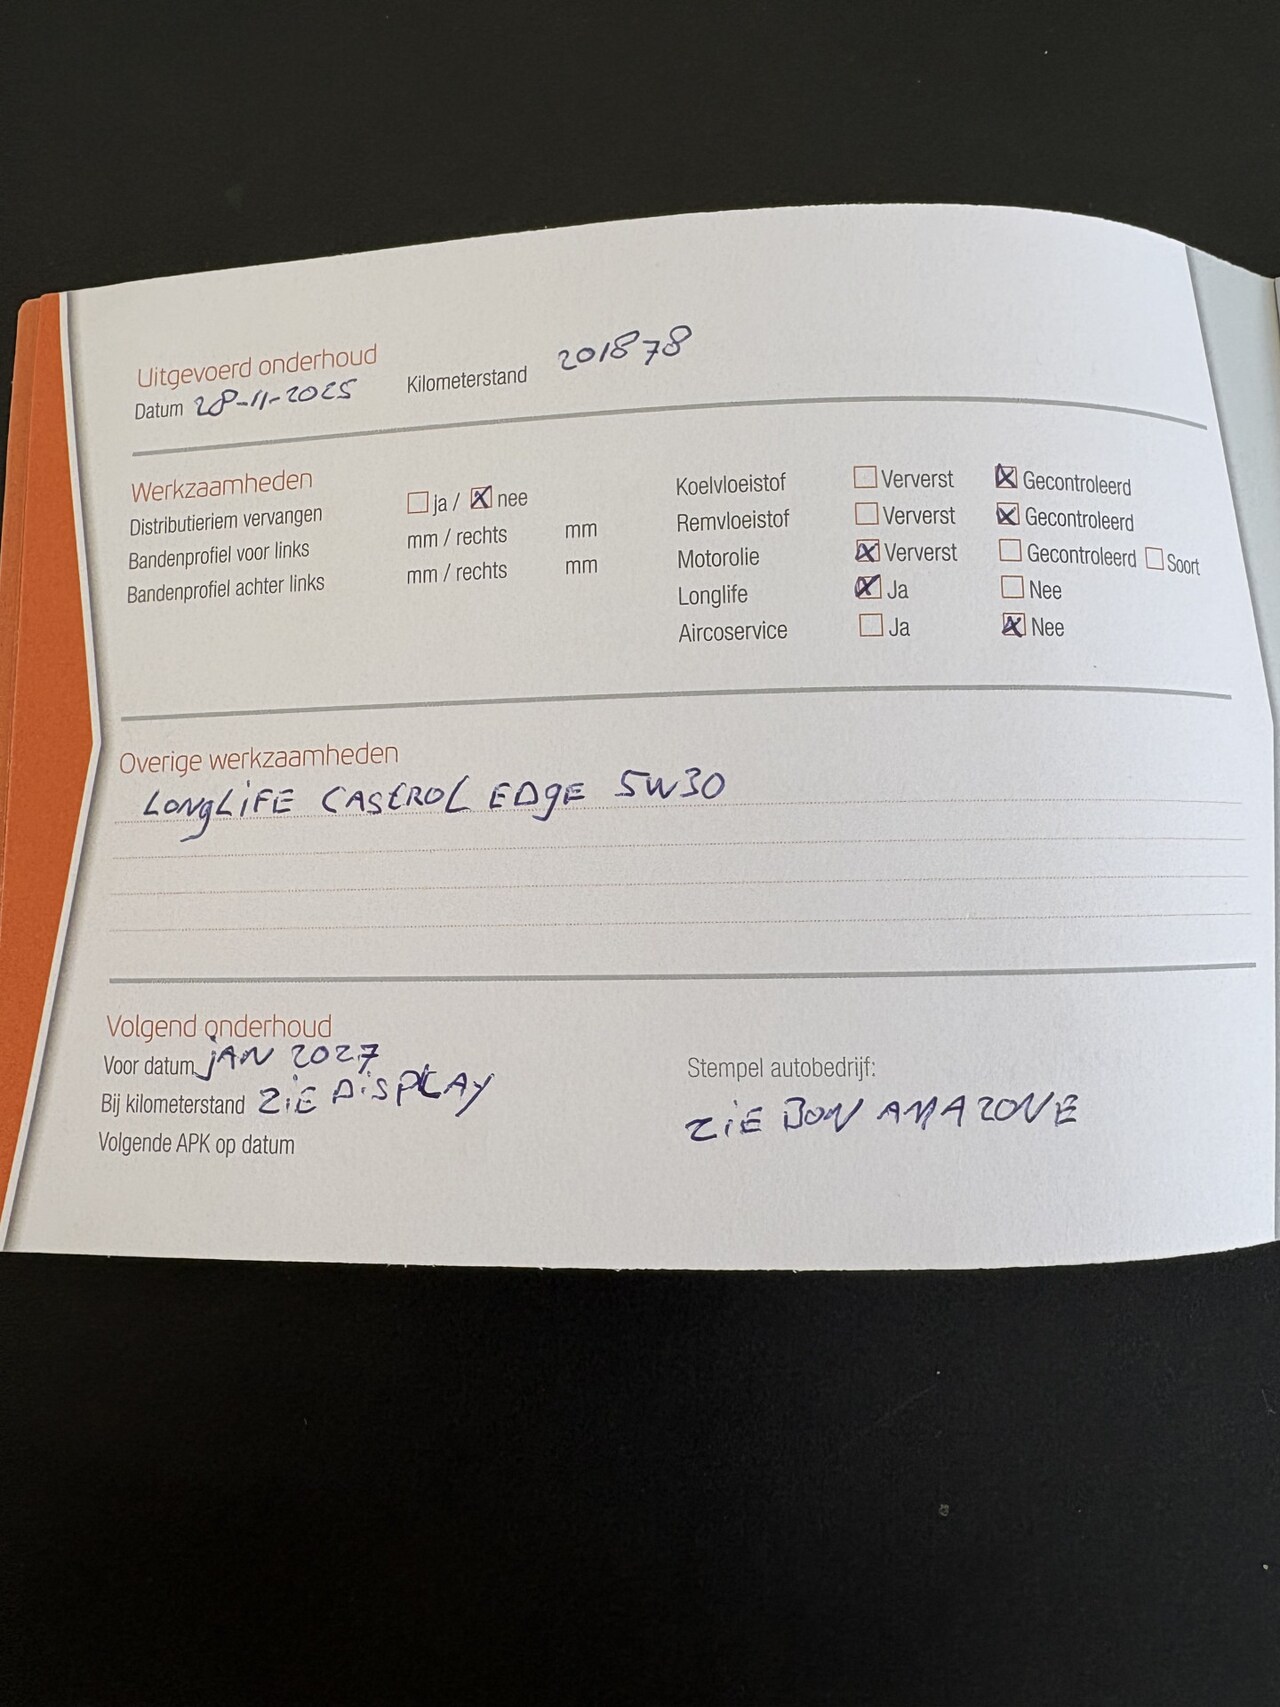 Uitgevoerd onderhoud
Datum 28-11-2025 Kilometerstand 201878
Werkzaamheden
Distributieriem vervangen ja / nee
Bandenprofiel voor links mm / rechts mm
Bandenprofiel achter links mm / rechts mm
Koelvloeistof Ververst Gecontroleerd
Remvloeistof Ververst Gecontroleerd
Motorolie Ververst Gecontroleerd Soort
Longlife Ja Nee
Aircoservice Ja Nee
Overige werkzaamheden
LONGLIFE CASTROL EDGE 5W30
Volgend onderhoud
Voor datum JAN 2027
Bij kilometerstand ZIE DISPLAY
Volgende APK op datum
Stempel autobedrijf:
ZIE BON AMAZONE